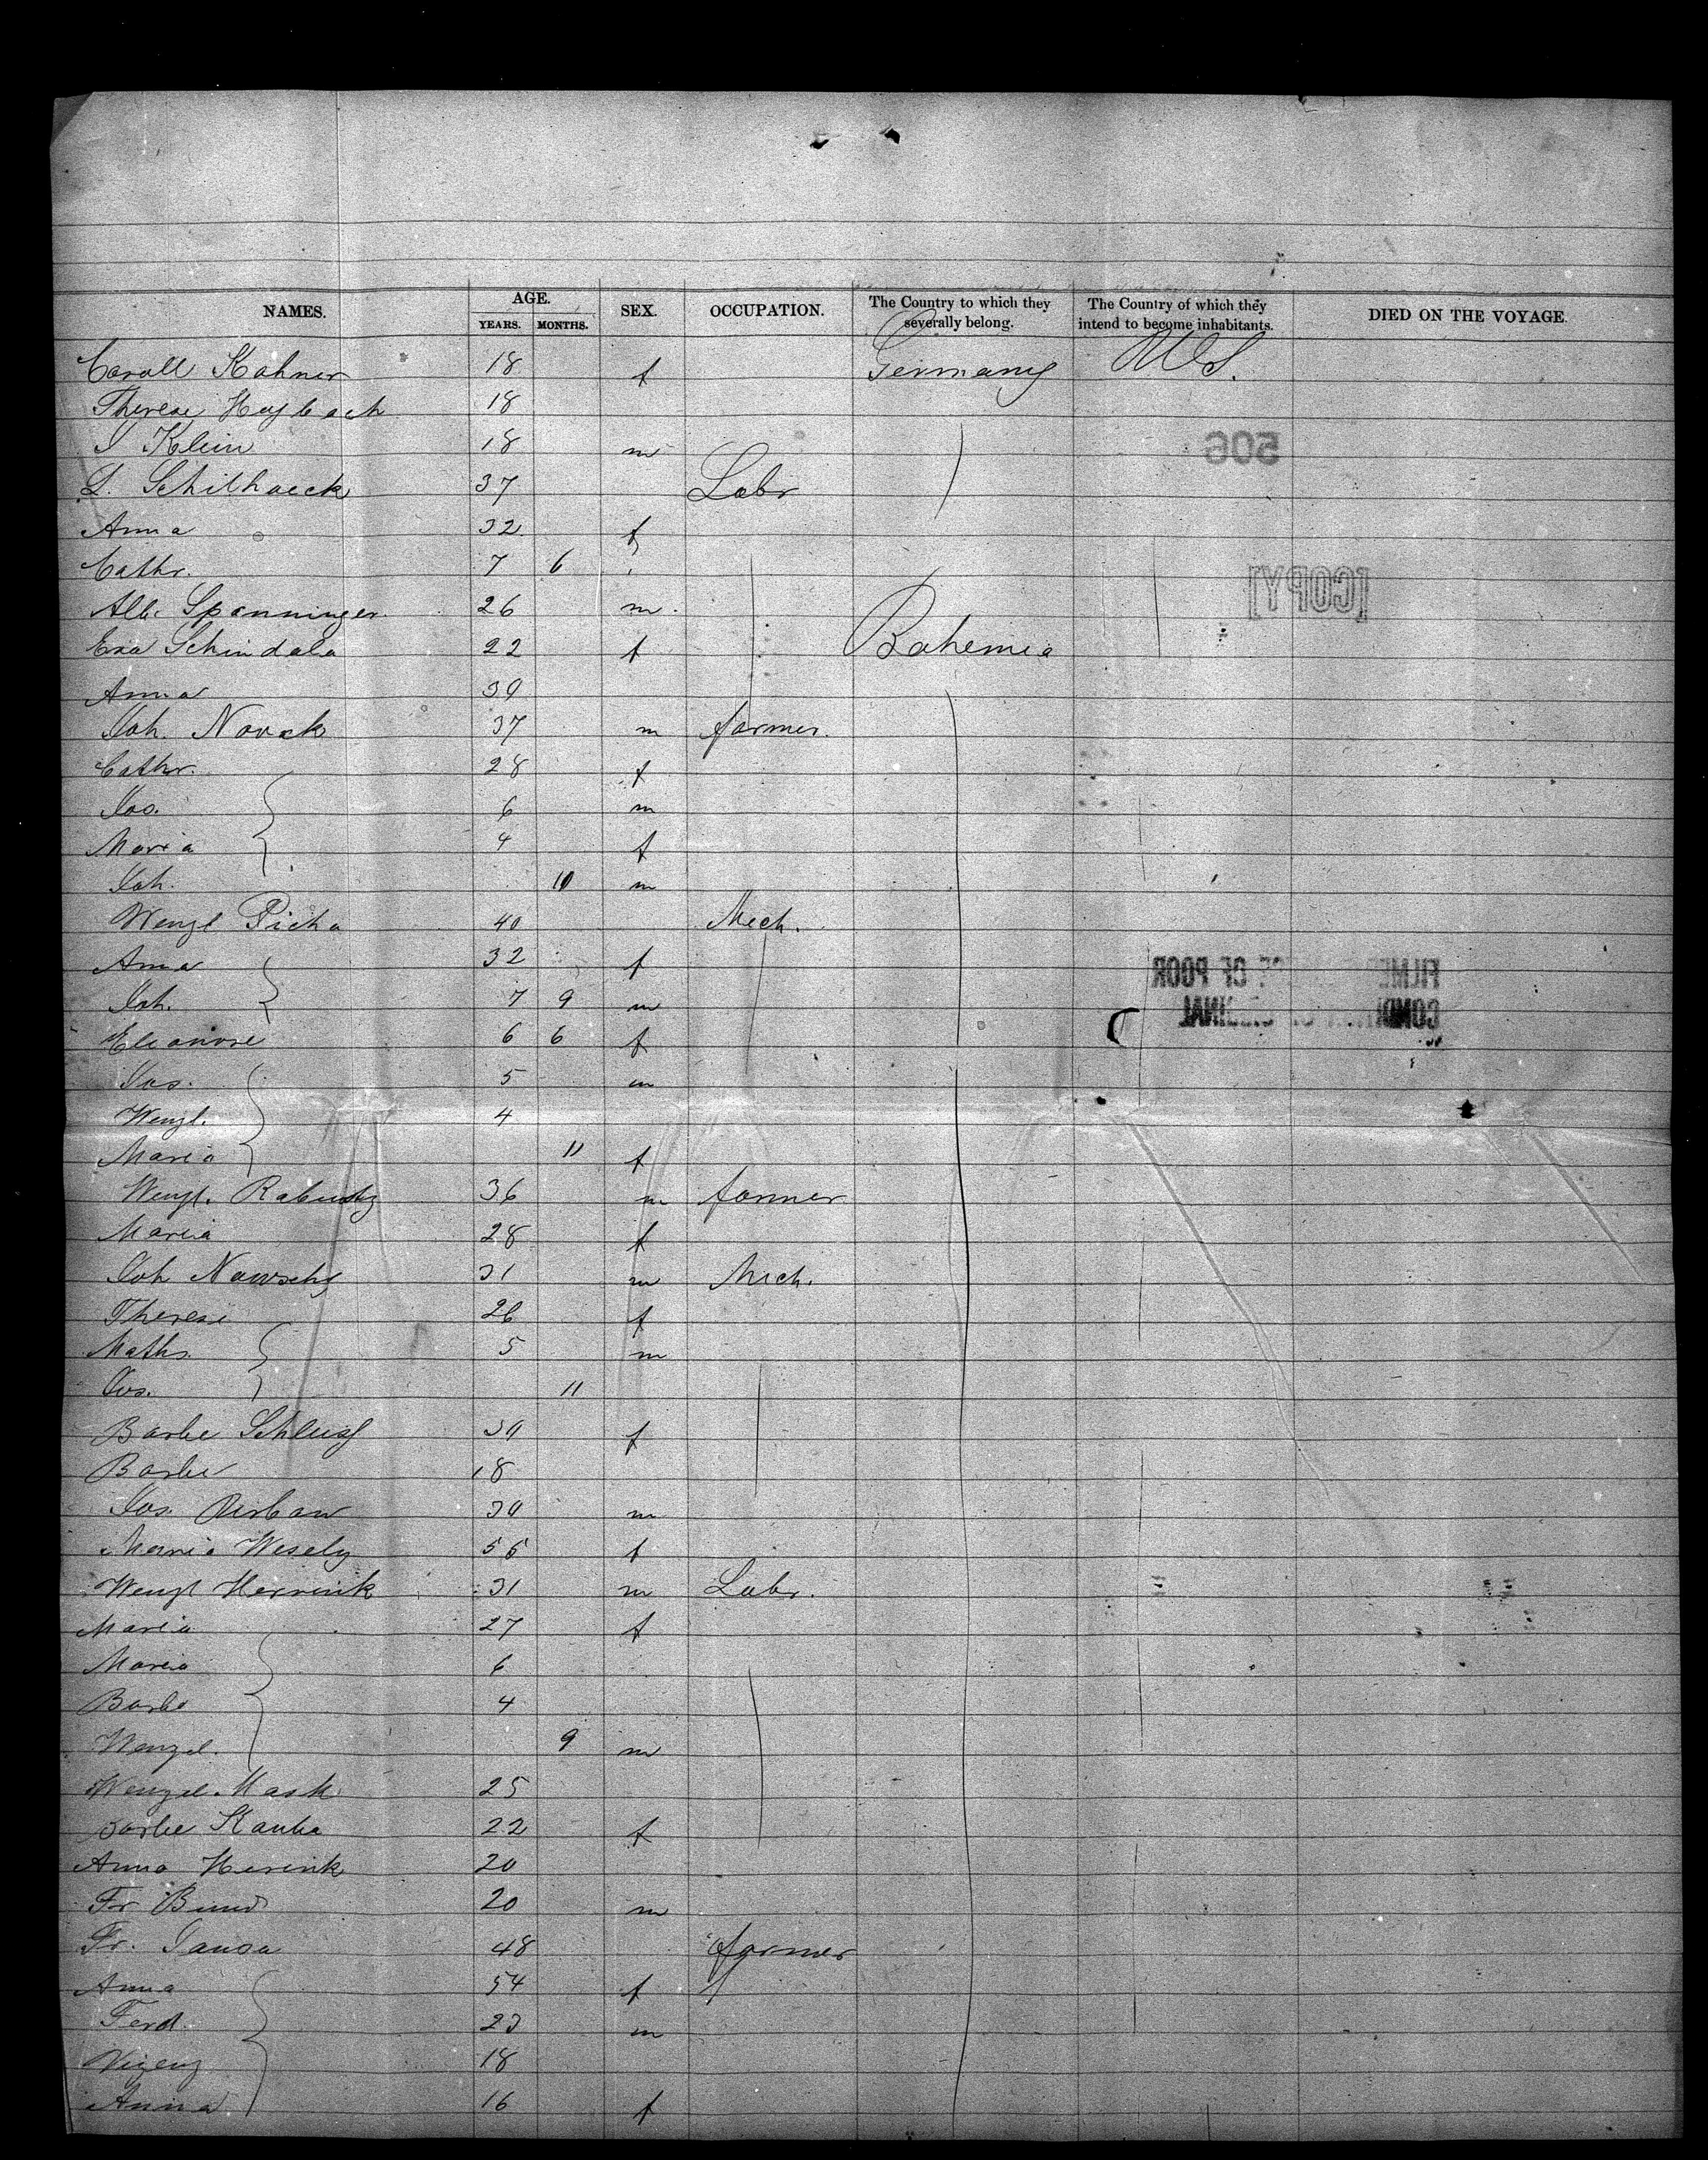 NAMES. AGE. SEX. OCCUPATION. The Country to which they severally belong. The Country of which they intend to become inhabitants. DIED ON THE VOYAGE.
YEARS. MONTHS.
Caroll Kohner 18 f Germany U.S.
Therese Heybach 18
J Klein 18 m
506
L. Schilhaeck 37 Labr
Anna 32 f
Cathr. 7 6
[COPY]
Alb. Spanninger 26 m
Eva Schindala 22 f Bohemia
Anna 30
Joh. Novak 37 m farmer.
Cathr. 28 f
Jos. 6 m
Maria 4 f
Joh. 10 m
Wenzl Picha 40 Mech.
Anna 32 f
FILMED OF POOR
Joh. 7 9 m
CONDITION ORIGINAL
Eleonore 6 6 f
Jos. 5 m
Wenzl. 4
Maria 11 f
Wenzl. Rabusky 36 m farmer
Maria 28 f
Joh Nowschy 31 m Mech.
Therese 26 f
Maths. 5 m
Jos. 11
Barbe 30 f
Barbe 18
Jos. Urban 30 m
Maria Wesely 56 f
Wenzl Herrink 31 m Labr.
Maria 27 f
Maria 6
Barbe 4
Wenzel. 9 m
Wenzel Mask 25
Barbe Kauba 22 f
Anna Herink 20
Fr 20 m
Fr. Jansa 48 farmer
Anna 54 f
Ferd. 23 m
Vizenz 18
Anna 16 f